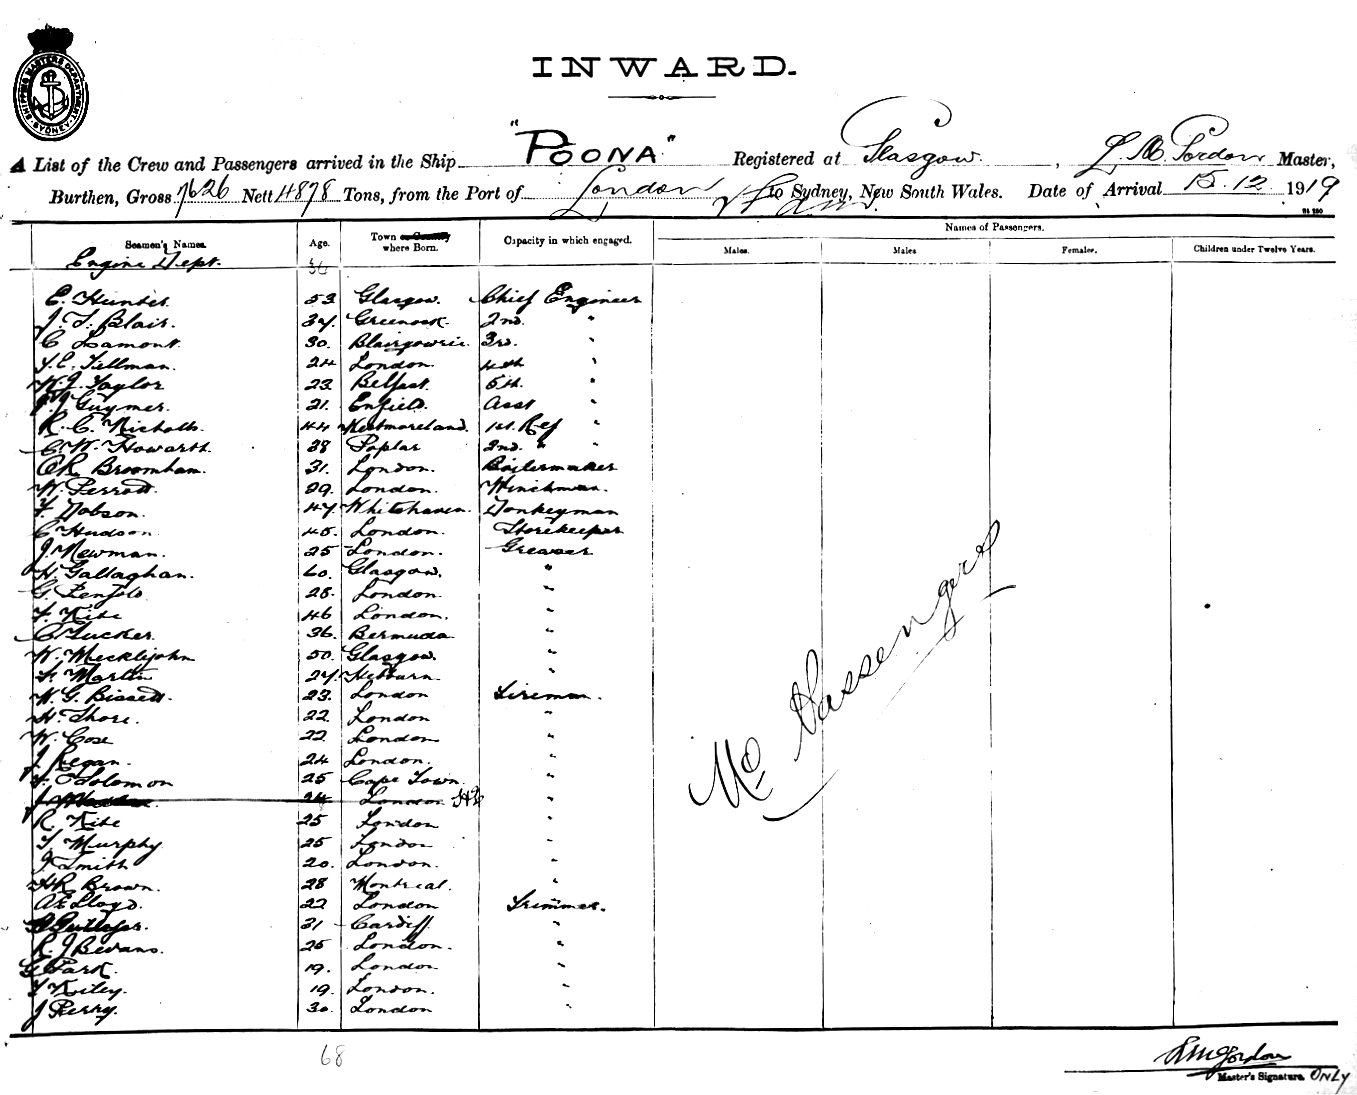 SHIPPING MASTERS DEPARTMENT SYDNEY
INWARD.
A List of the Crew and Passengers arrived in the Ship "POONA" Registered at Glasgow. , Gordon Master,
Burthen, Gross 7626 Nett 4878 Tons, from the Port of London to Sydney, New South Wales. Date of Arrival 15.12 1919
Names of Passengers.
Seamen's Names. Age. Town or Country where Born. Capacity in which engaged. Males. Males Females. Children under Twelve Years.
Engine Dept. 36
E. Hunter. 53 Glasgow. Chief Engineer
J. T. Blair. 37. Greenock. 2nd. "
C Lamont. 30. Blairgowrie. 3rd. "
Y. C. Tillman. 24 London. 4th "
W. J. Taylor 23. Belfast. 5th. "
J. Guymer. 21. Enfield. Asst "
R. C. Nicholls. 44 Westmoreland. 1st. Ref "
C. W. Howarth. 38 Poplar 2nd. " "
C R Broomham. 31. London. Boilermaker
W. Perrott. 29. London. Winchman.
F. Dobson. 47 Whitehaven. Donkeyman
C Hudson 45. London. Storekeeper
J. Newman. 25 London. Greaser
H. Gallaghan. 60. Glasgow. "
G. Penfold 28. London. "
F. Kite 46 London. "
C Tucker. 36. Bermuda. "
W. Mecklejohn 50. Glasgow. "
F. Martin 27 Hebburn. "
W. G. Bissett. 23. London Fireman.
H. Shore. 22 London "
W. Cose 22. London "
J Regan. 24 London. "
F. Solomon 25 Cape Town. "
J 24 London "
R. Kite 25 London "
T. Murphy 25 London "
J Smith 20. London. "
H R Brown. 28 Montreal. "
A E Lloyd. 22 London Trimmer.
31 Cardiff. "
R. J Bevans. 25 London. "
G Park. 19. London "
T Kiley. 19. London. "
J Perry. 30. London "
No Passengers
68
L M Gordon
Master's Signature ONLY